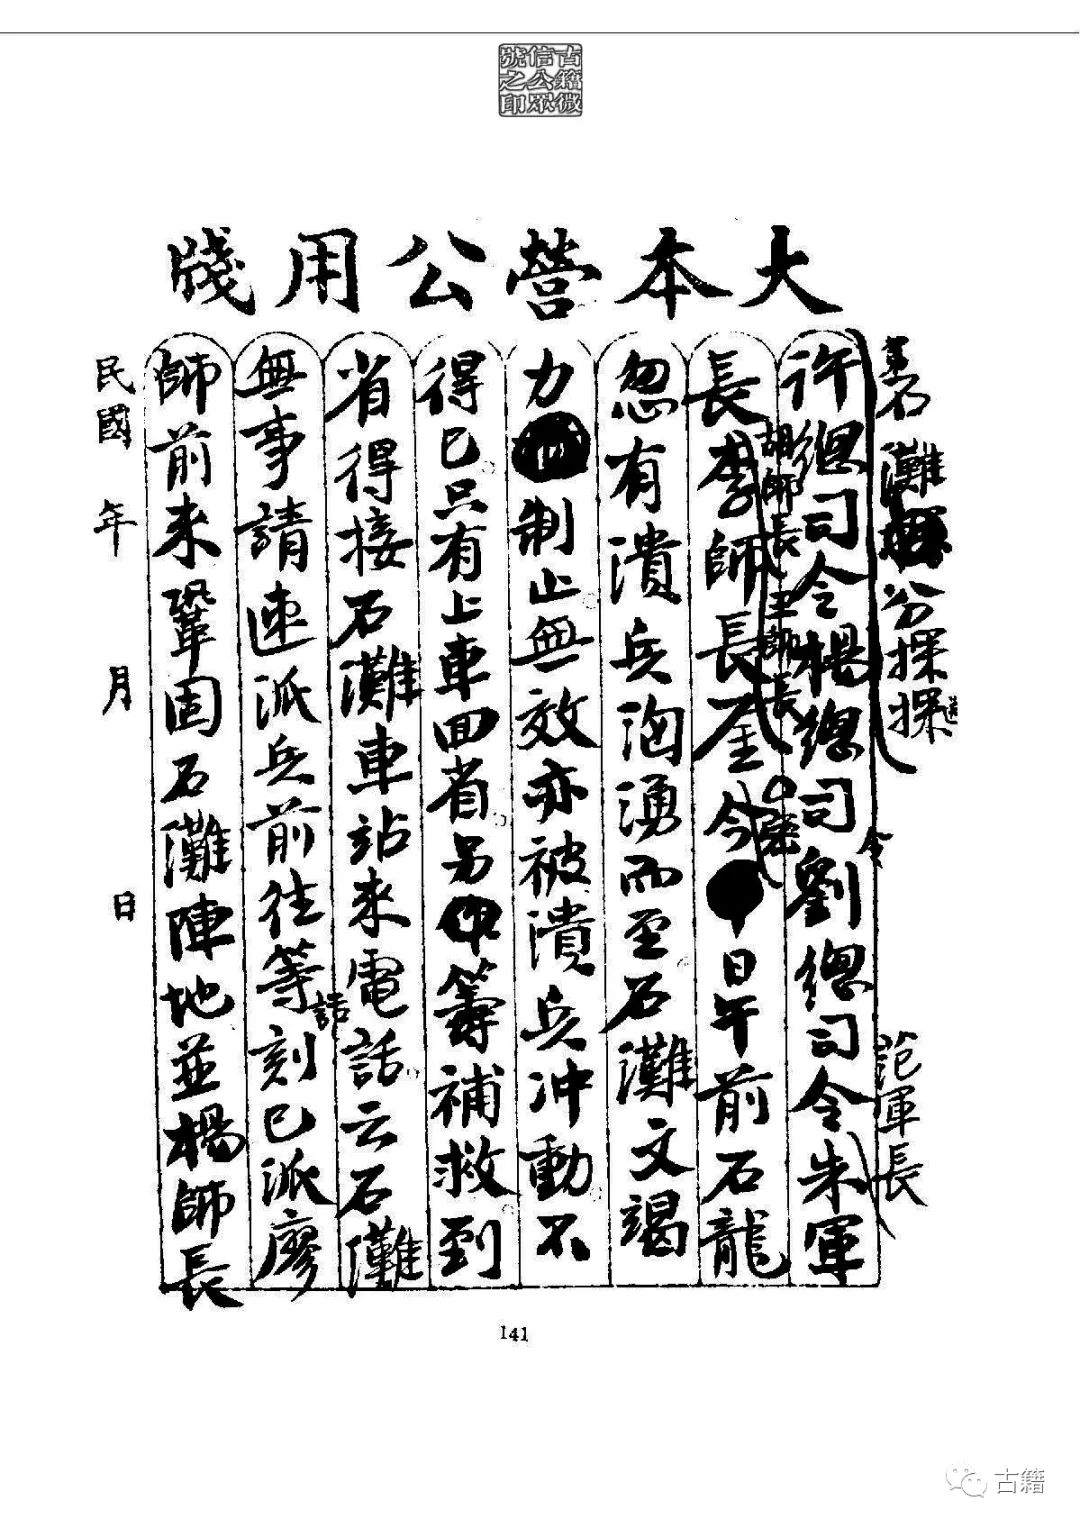 古籍微
信公眾
號之印
大本營公用牋
石灘分探探送
許總司令楊總司令劉總司令朱軍
范軍長
長李師長鑒今日午前石龍
胡師長王師長
忽有潰兵洶湧而至石灘文竭
力制止無效亦被潰兵沖動不
得已只有上車回省另籌補救到
省得接石灘車站來電話云石灘
無事請速派兵前往等話刻已派廖
師前來鞏固石灘陣地並楊師長
民國 年 月 日
141
古籍